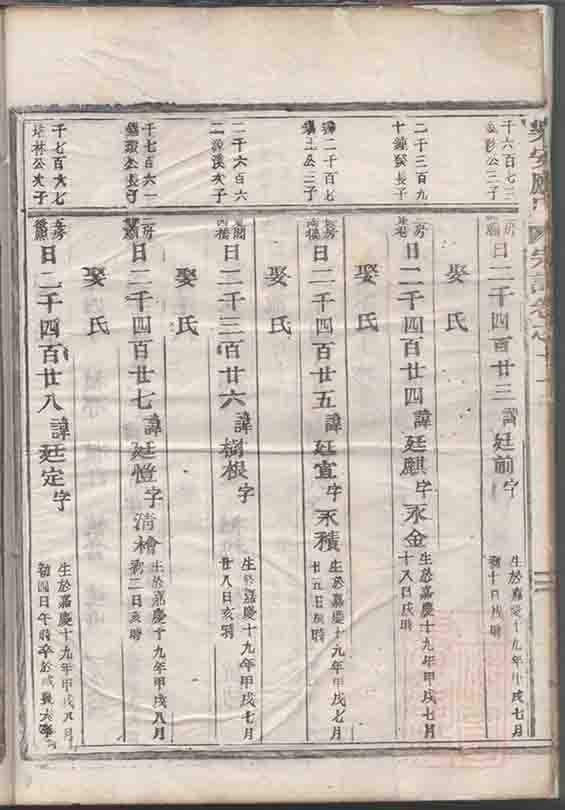 千六百七三
公三子
房
日二千四百廿三
諱廷前字
生於嘉慶十九年甲戌七月
初十日戌時
娶氏
二千三百九
十長子
房
日二千四百廿四
諱廷麒字永金
生於嘉慶十九年甲戌七月
十八日戌時
娶氏
二千百七
公三子
房
日二千四百廿五
諱廷宣字禾積
生於嘉慶十九年甲戌七月
廿五日時
娶氏
二千六百六
次子
日二千四百廿六
諱樹根字
生於嘉慶十九年甲戌七月
廿八日亥時
娶氏
千七百六一
公長子
房
日二千四百廿七
諱廷愷字清檜
生於嘉慶十九年甲戌八月
初二日亥時
娶氏
千七百六七
培林公次子
房
日二千四百廿八
諱廷定字
生於嘉慶十九年甲戌八月
初四日午時卒於咸豐六年